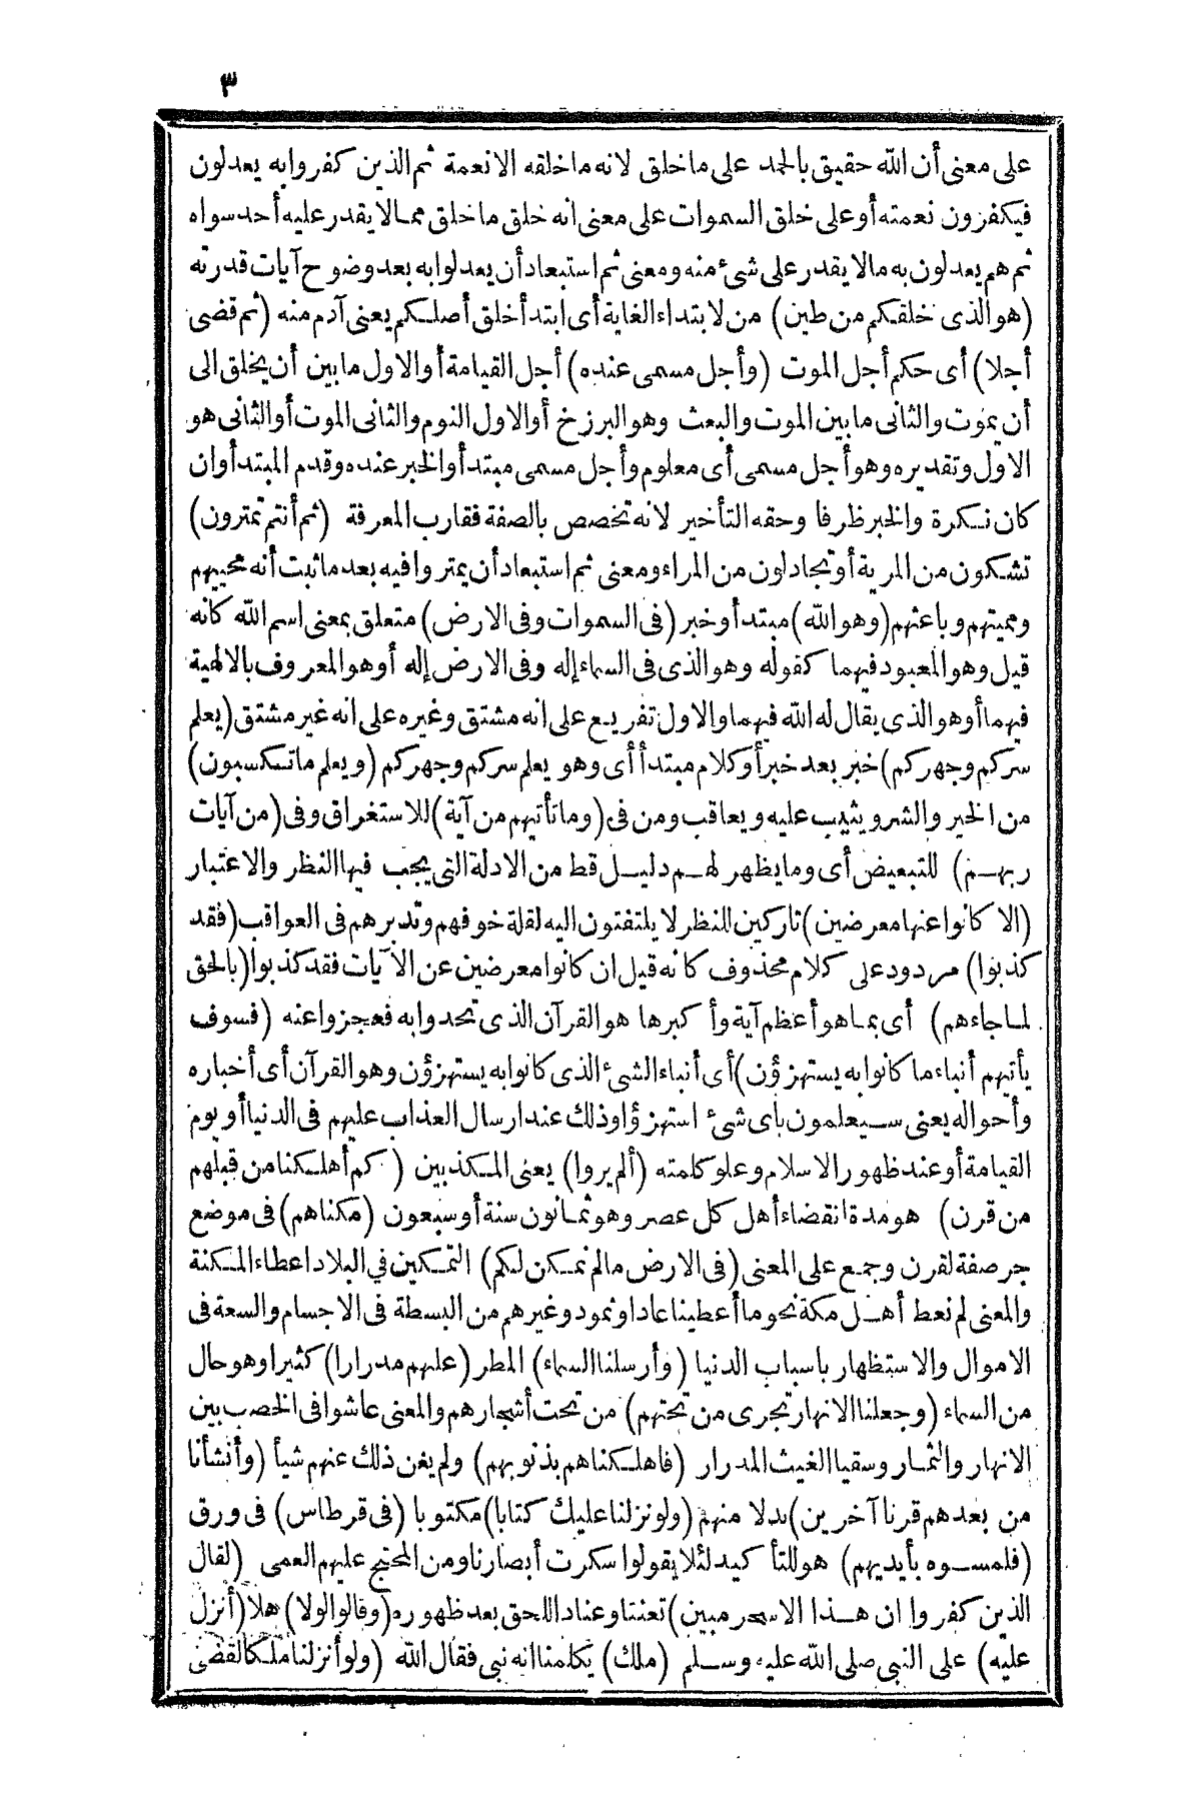 ٣
على معنى أن الله حقيق بالحمد على ما خلق لانه ما خلقه الا نعمة ثم الذين كفروا به يعدلون
فيكفرون نعمته أو على خلق السموات على معنى انه خلق ما خلق مما لا يقدر عليه أحد سواه
ثم هم يعدلون به ما لا يقدر على شئ منه ومعنى ثم استبعاد أن يعدلوا به بعد وضوح آيات قدرته
(هو الذى خلقكم من طين) من لابتداء الغاية أى ابتدأ خلق أصلكم يعنى آدم منه (ثم قضى
أجلا) أى حكم أجل الموت (وأجل مسمى عنده) أجل القيامة أو الاول ما بين أن يخلق الى
أن يموت والثانى ما بين الموت والبعث وهو البرزخ أو الاول النوم والثانى الموت أو الثانى هو
الاول وتقديره وهو أجل مسمى أى معلوم وأجل مسمى مبتدأ والخبر عنده وقدم المبتدأ وان
كان نكرة والخبر ظرفا وحقه التأخير لانه تخصص بالصفة فقارب المعرفة (ثم أنتم تمترون)
تشكون من المرية أو تجادلون من المراء ومعنى ثم استبعاد أن يمتروا فيه بعد ما ثبت أنه محييهم
ومميتهم وباعثهم (وهو الله) مبتدأ وخبر (فى السموات وفى الارض) متعلق بمعنى اسم الله كانه
قيل وهو المعبود فيهما كقوله وهو الذى فى السماء إله وفى الارض إله أو هو المعروف بالالهية
فيهما أو هو الذى يقال له الله فيهما والاول تفريع على انه مشتق وغيره على انه غير مشتق (يعلم
سركم وجهركم) خبر بعد خبر أو كلام مبتدأ أى وهو يعلم سركم وجهركم (ويعلم ما تكسبون)
من الخير والشر ويثيب عليه ويعاقب ومن فى (وما تأتيهم من آية) للاستغراق وفى (من آيات
ربهم) للتبعيض أى وما يظهر لهم دليل قط من الادلة التى يجب فيها النظر والاعتبار
(الا كانوا عنها معرضين) تاركين للنظر لا يلتفتون اليه لقلة خوفهم وتدبرهم فى العواقب (فقد
كذبوا) مردود على كلام محذوف كانه قيل ان كانوا معرضين عن الآيات فقد كذبوا (بالحق
لما جاءهم) أى بما هو أعظم آية وأكبرها هو القرآن الذى تحدوا به فعجزوا عنه (فسوف
يأتيهم أنباء ما كانوا به يستهزؤن) أى أنباء الشئ الذى كانوا به يستهزؤن وهو القرآن أى أخباره
وأحواله يعنى سيعلمون بأى شئ استهزؤا وذلك عند ارسال العذاب عليهم فى الدنيا أو يوم
القيامة أو عند ظهور الاسلام وعلو كلمته (ألم يروا) يعنى المكذبين (كم أهلكنا من قبلهم
من قرن) هو مدة انقضاء أهل كل عصر وهو ثمانون سنة أو سبعون (مكناهم) فى موضع
جر صفة لقرن وجمع على المعنى (فى الارض ما لم نمكن لكم) التمكين في البلاد اعطاء المكنة
والمعنى لم نعط أهل مكة نحو ما أعطينا عادا وثمود وغيرهم من البسطة فى الاجسام والسعة فى
الاموال والاستظهار باسباب الدنيا (وأرسلنا السماء) المطر (عليهم مدرارا) كثيرا وهو حال
من السماء (وجعلنا الانهار تجرى من تحتهم) من تحت أشجارهم والمعنى عاشوا فى الخصب بين
الانهار والثمار وسقيا الغيث المدرار (فاهلكناهم بذنوبهم) ولم يغن ذلك عنهم شيأ (وأنشأنا
من بعدهم قرنا آخرين) بدلا منهم (ولو نزلنا عليك كتابا) مكتوبا (فى قرطاس) فى ورق
(فلمسوه بأيديهم) هو للتأكيد لئلا يقولوا سكرت أبصارنا ومن المحتج عليهم العمى (لقال
الذين كفروا ان هذا الا سحر مبين) تعنتا وعنادا للحق بعد ظهوره (وقالوا لولا) هلا (أنزل
عليه) على النبى صلى الله عليه وسلم (ملك) يكلمنا انه نبى فقال الله (ولو أنزلنا ملكا لقضى